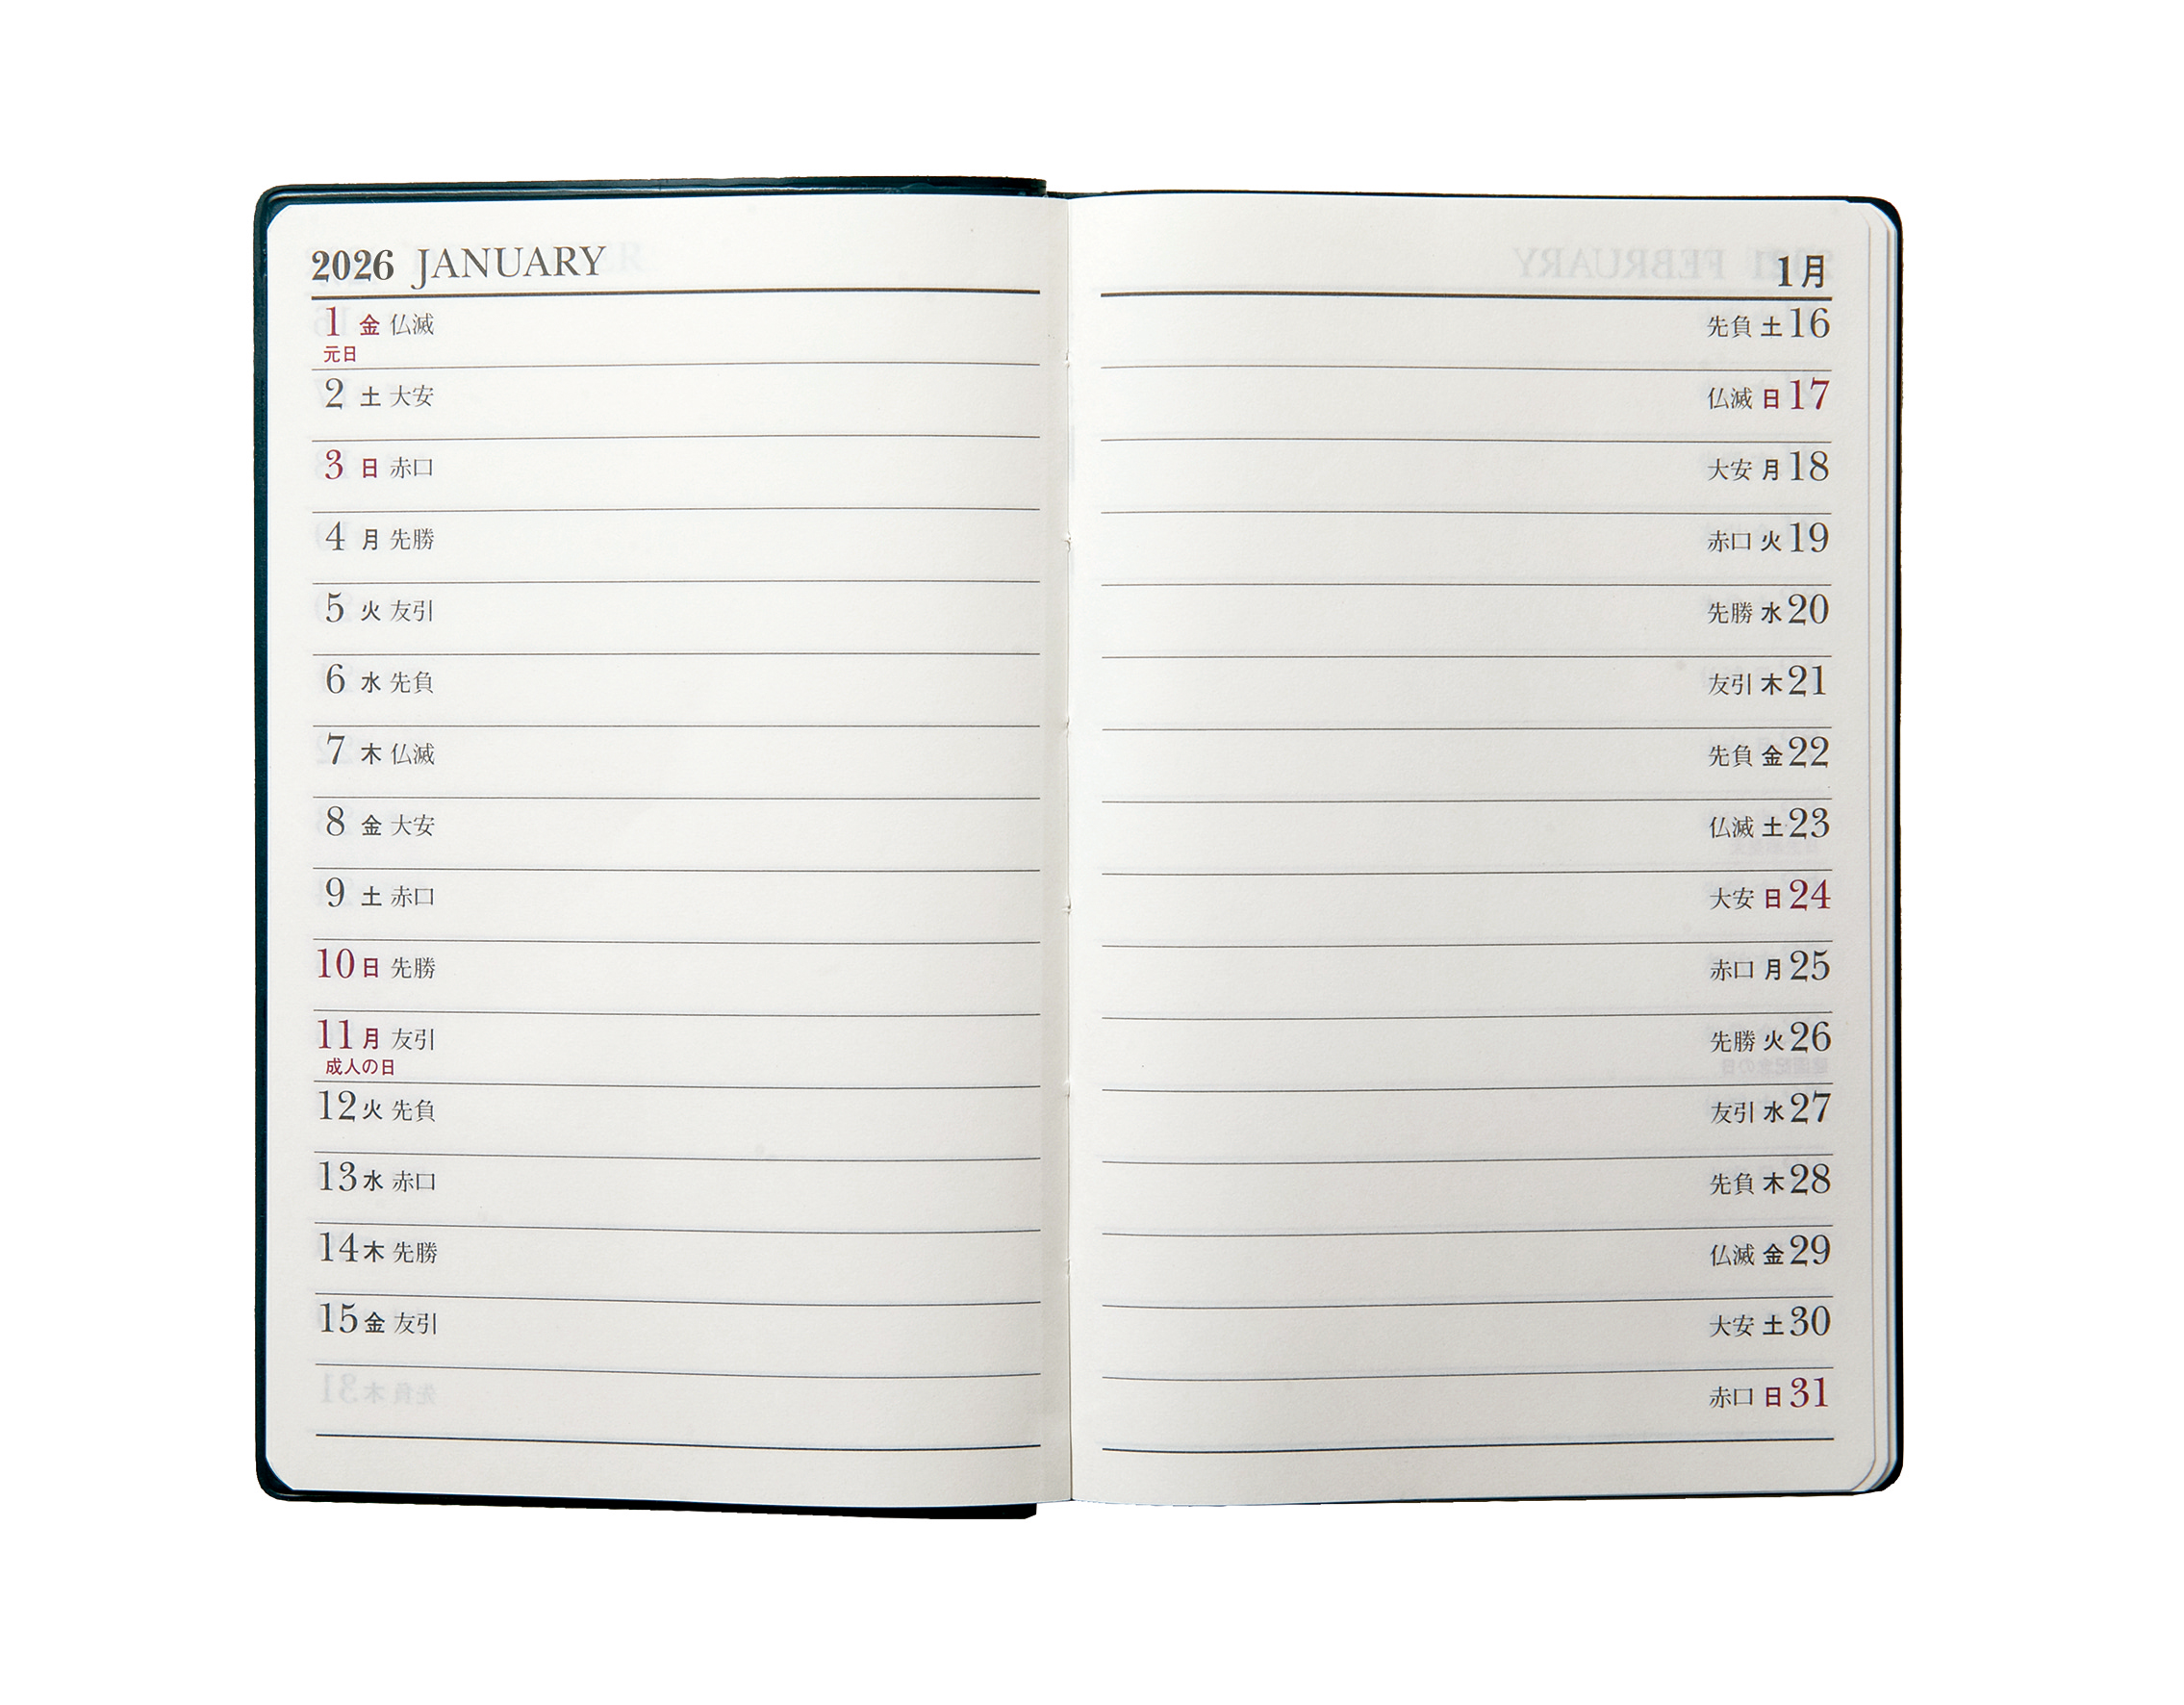 2026 JANUARY
1 金 仏滅
元日
2 土 大安
3 日 赤口
4 月 先勝
5 火 友引
6 水 先負
7 木 仏滅
8 金 大安
9 土 赤口
10 日 先勝
11 月 友引
成人の日
12 火 先負
13 水 赤口
14 木 先勝
15 金 友引
1月
先負 土 16
仏滅 日 17
大安 月 18
赤口 火 19
先勝 水 20
友引 木 21
先負 金 22
仏滅 土 23
大安 日 24
赤口 月 25
先勝 火 26
友引 水 27
先負 木 28
仏滅 金 29
大安 土 30
赤口 日 31